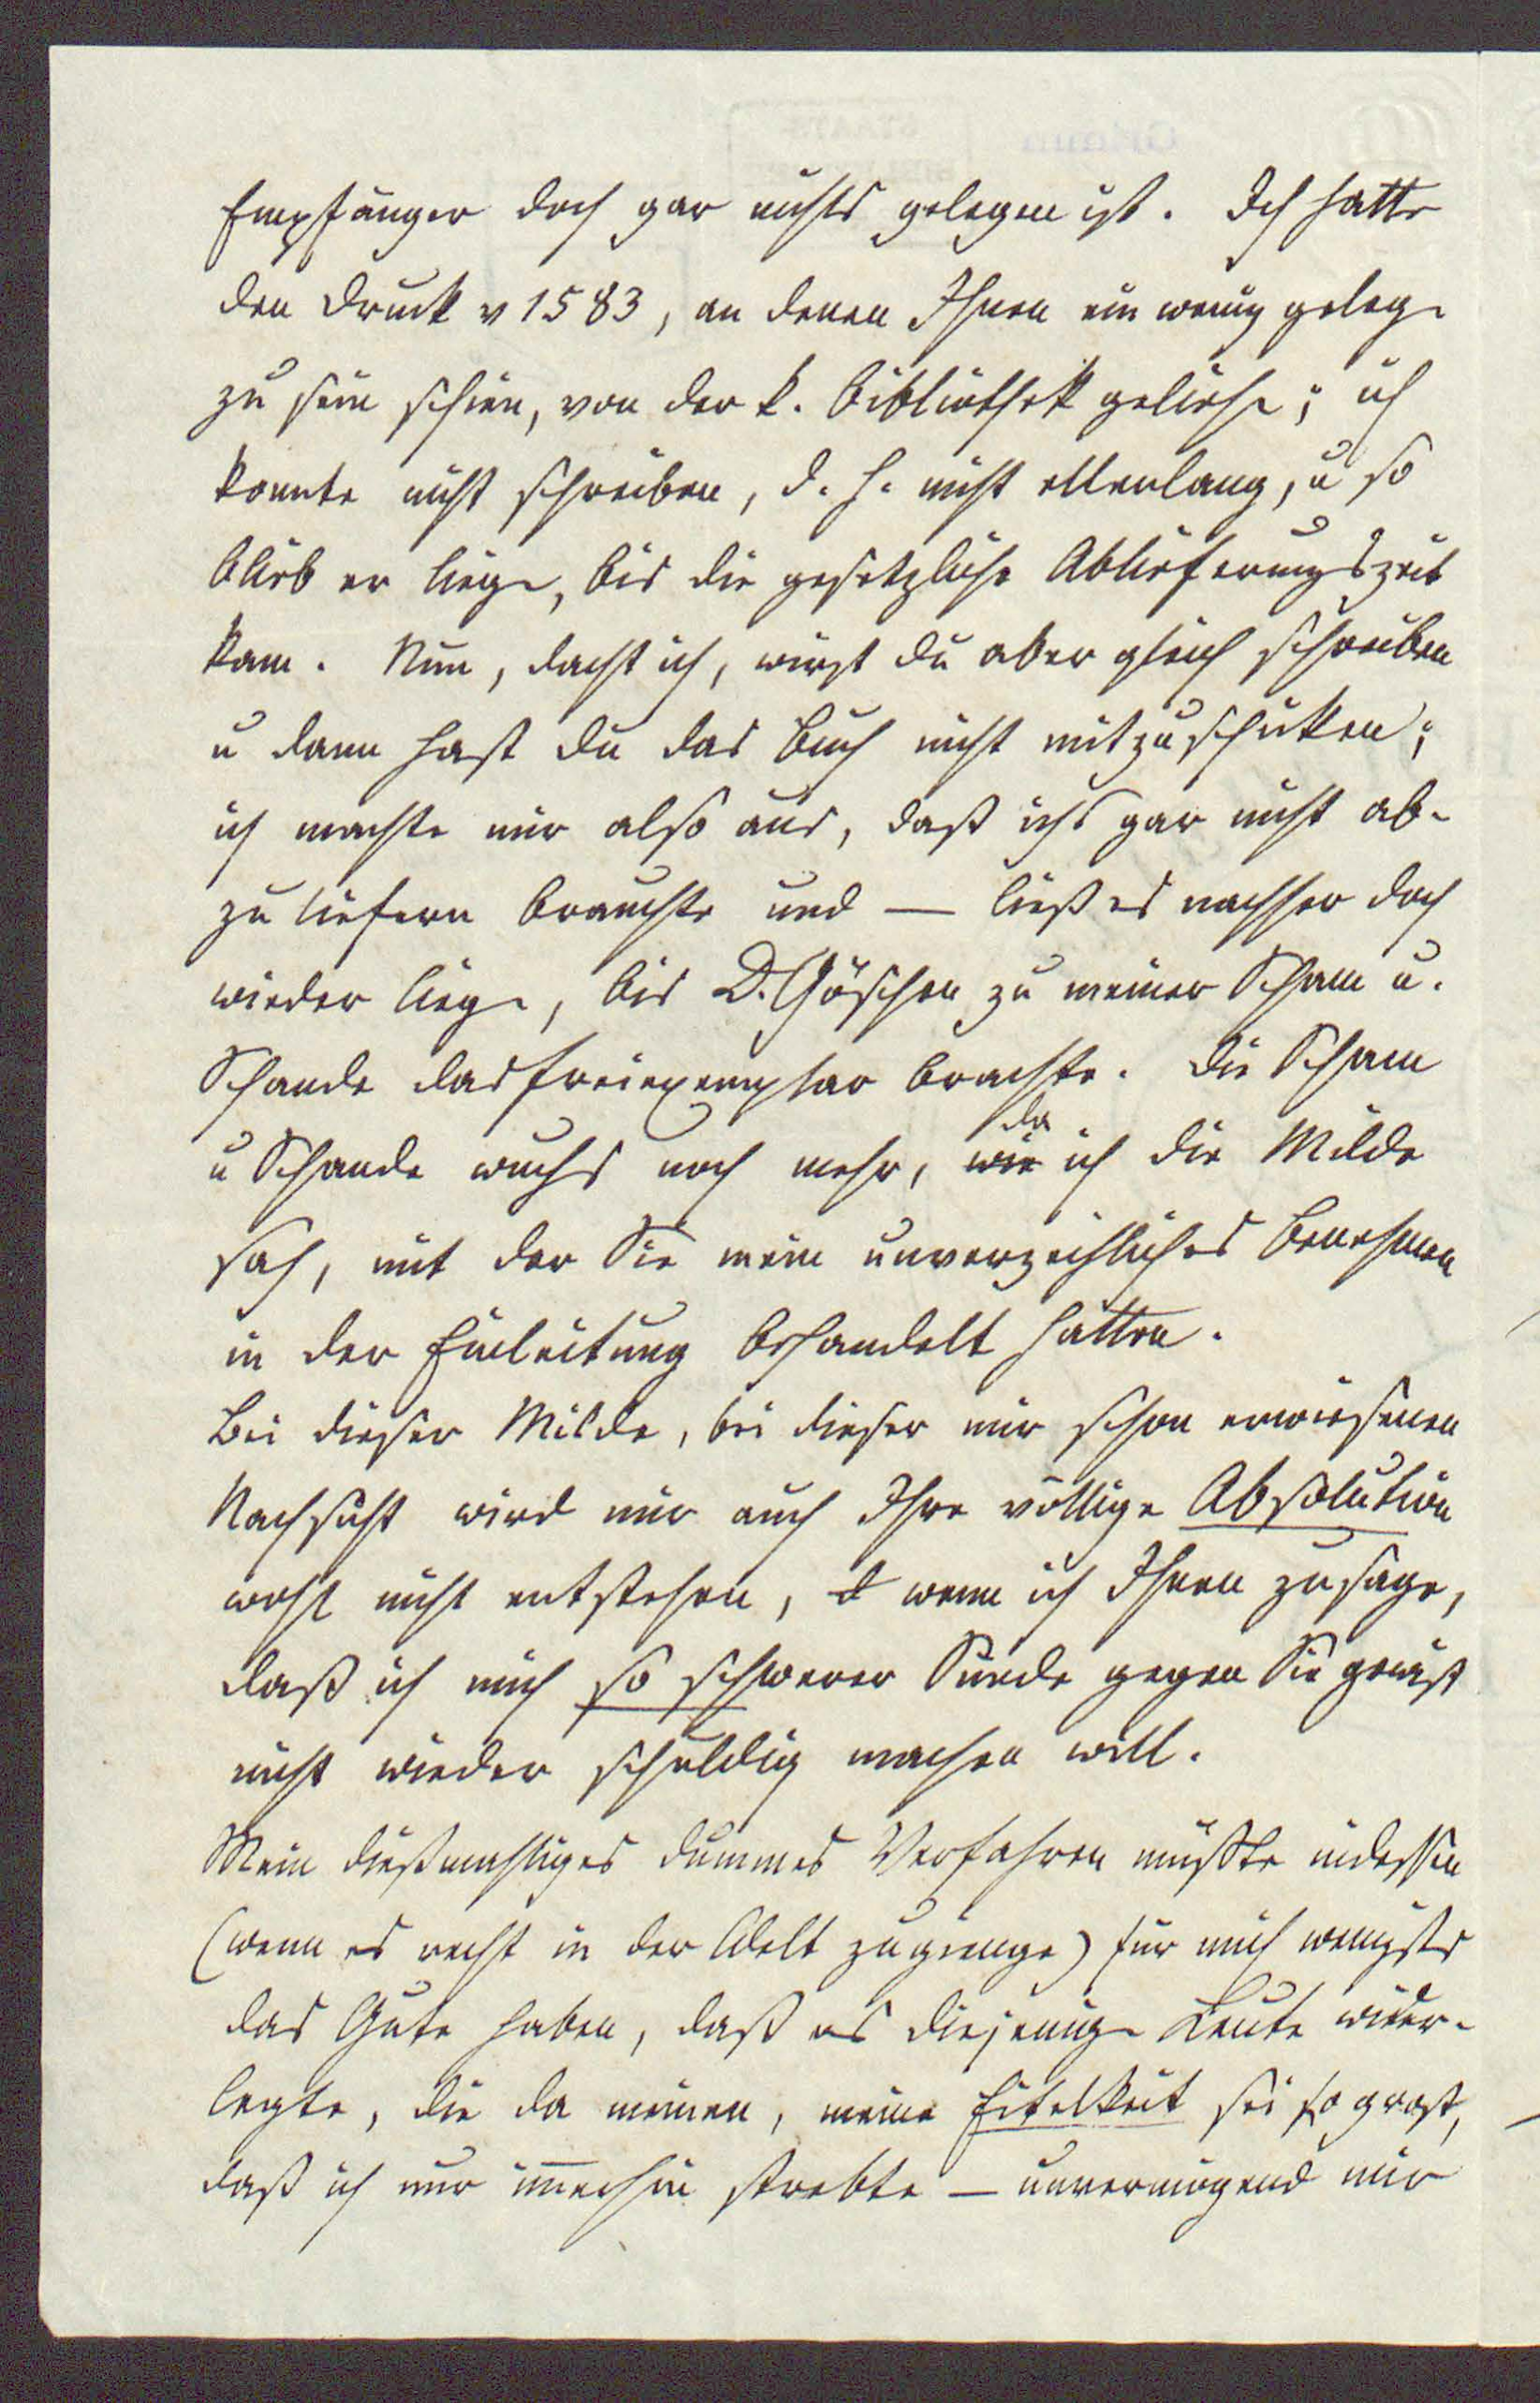 Empfänger doch gar nichts gelegen ist. Ich hatte
den Druck v 1583, an denen Ihnen ein wenig geleg.
zu sein schien, von der k. Bibliothek geliehe; ich
konnte nicht schreiben, d. h. nicht ellenlang, u so
blieb er liege, bis die gesetzliche Ablieferungszeit
kam. Nun, dacht ich, wirst du aber gleich schreiben
u dann hast du das Buch nicht mitzuschicken;
ich machte mir also aus, daß ichs gar nicht ab-
zuliefern brauchte und — ließ es nachher doch
wieder liege, bis D. Göschen zu meiner Scham u.
Schande das Freiexemplar brachte. Die Scham
u Schande wuchs noch mehr, wie da ich die Milde
sah, mit der Sie mein unverzeihliches Benehmen
in der Einleitung behandelt hatten.
Bei dieser Milde, bei dieser mir schon erwiesenen
Nachsicht wird mir auch Ihre völlige Absolution
wohl nicht entstehen, d wenn ich Ihnen zusage,
daß ich mich so schwerer Sünde gegen Sie gewiß
nicht wieder schuldig machen will.
Mein dießmahliges dummes Verfahren müßte indessen
(wenn es recht in der Welt zugienge) für mich wenigsts
das Gute haben, daß es diejenige Leute wider-
legte, die da meinen, meine Eitelkeit sei so groß,
daß ich nur immerhin strebte — unvermögend mir